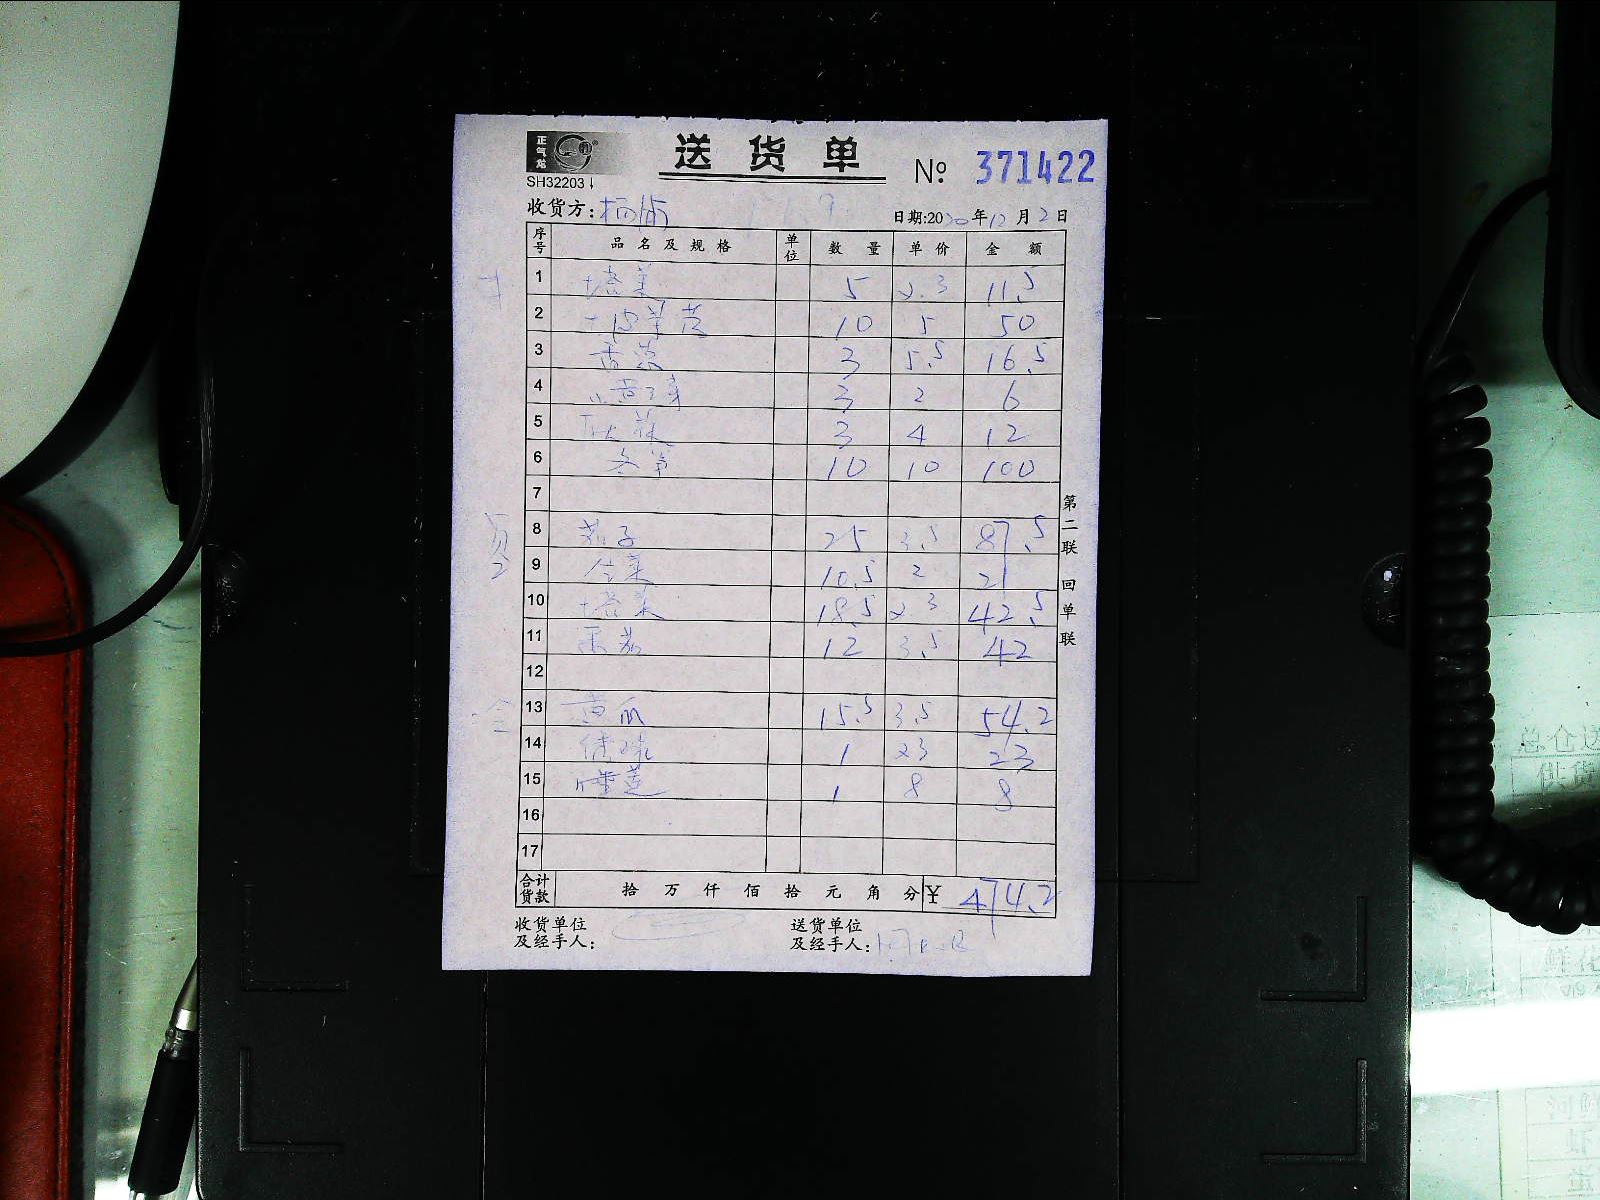 正气龙
送货单 № 371422
SH32203
收货方:
日期:2020年12月2日
序号 品名及规格 单位 数量 单价 金额
1 塔菜 5 2.3 11.5
2 10 5 50
3 香菜 3 5.5 16.5
4 3 2 6
5 3 4 12
6 冬笋 10 10 100
7
8 茄子 25 3.5 87.5
9 10.5 2 21
10 塔菜 18.5 2.3 42.5
11 番茄 12 3.5 42
12
13 黄瓜 15.5 3.5 54.2
14 1 23 23
15 1 8 8
16
17
合计货款 拾万仟佰拾元角分 ¥ 474.2
收货单位及经手人:
送货单位及经手人:
第二联 回单联
总仓送
供货